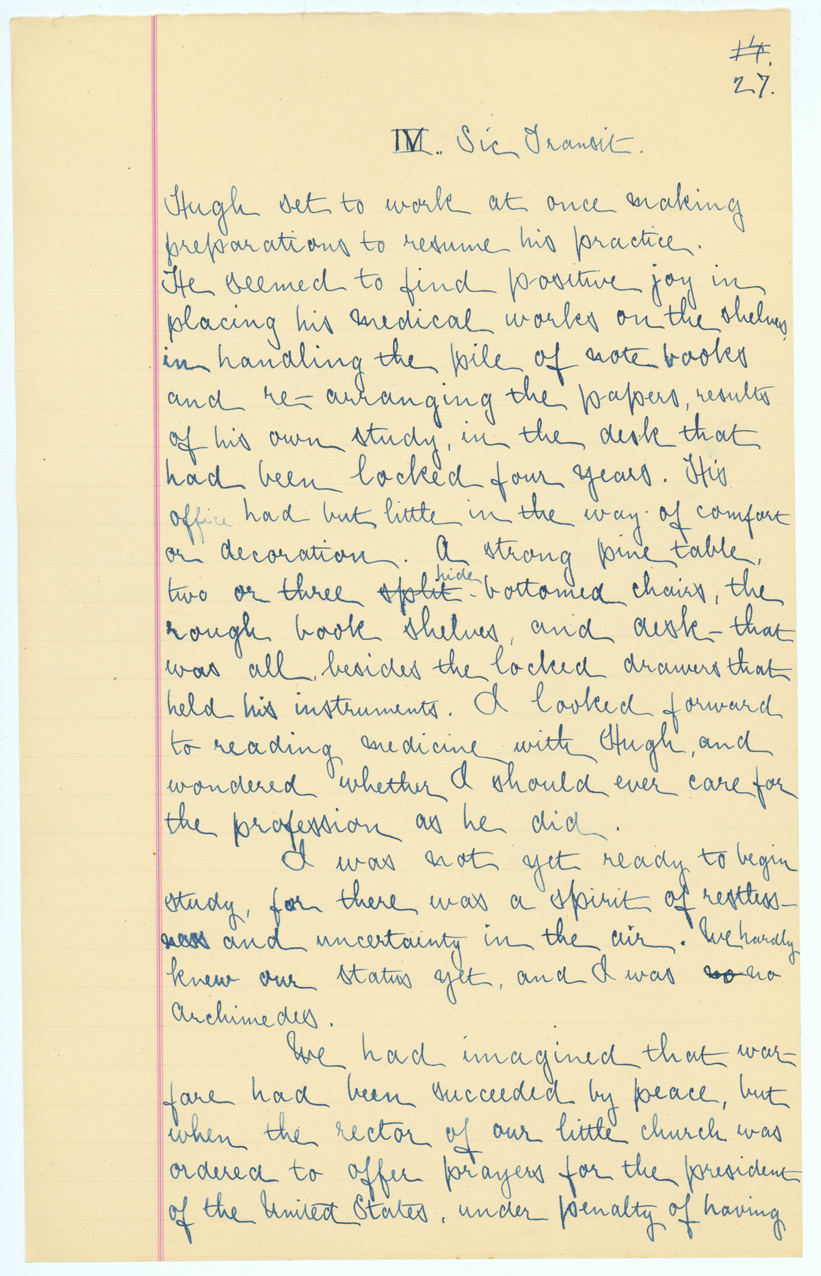 14.
27.
IV. Sic Transit.
Hugh set to work at once making
preparations to resume his practice.
He seemed to find positive joy in
placing his medical works on the shelves,
in handling the pile of note books
and re-arranging the papers, results
of his own study, in the desk that
had been locked four years. His
office had but little in the way of comfort
or decoration. A strong pine table,
hide
two or three split-bottomed chairs, the
rough book shelves, and desk - that
was all, besides the locked drawers that
held his instruments. I looked forward
to reading medicine with Hugh, and
wondered whether I should ever care for
the profession as he did.
I was not yet ready to begin
study, for there was a spirit of restless-
ness and uncertainty in the air. We hardly
knew our status yet, and I was so no
Archimedes.
We had imagined that war-
fare had been succeeded by peace, but
when the rector of our little church was
ordered to offer prayers for the president
of the United States, under penalty of having